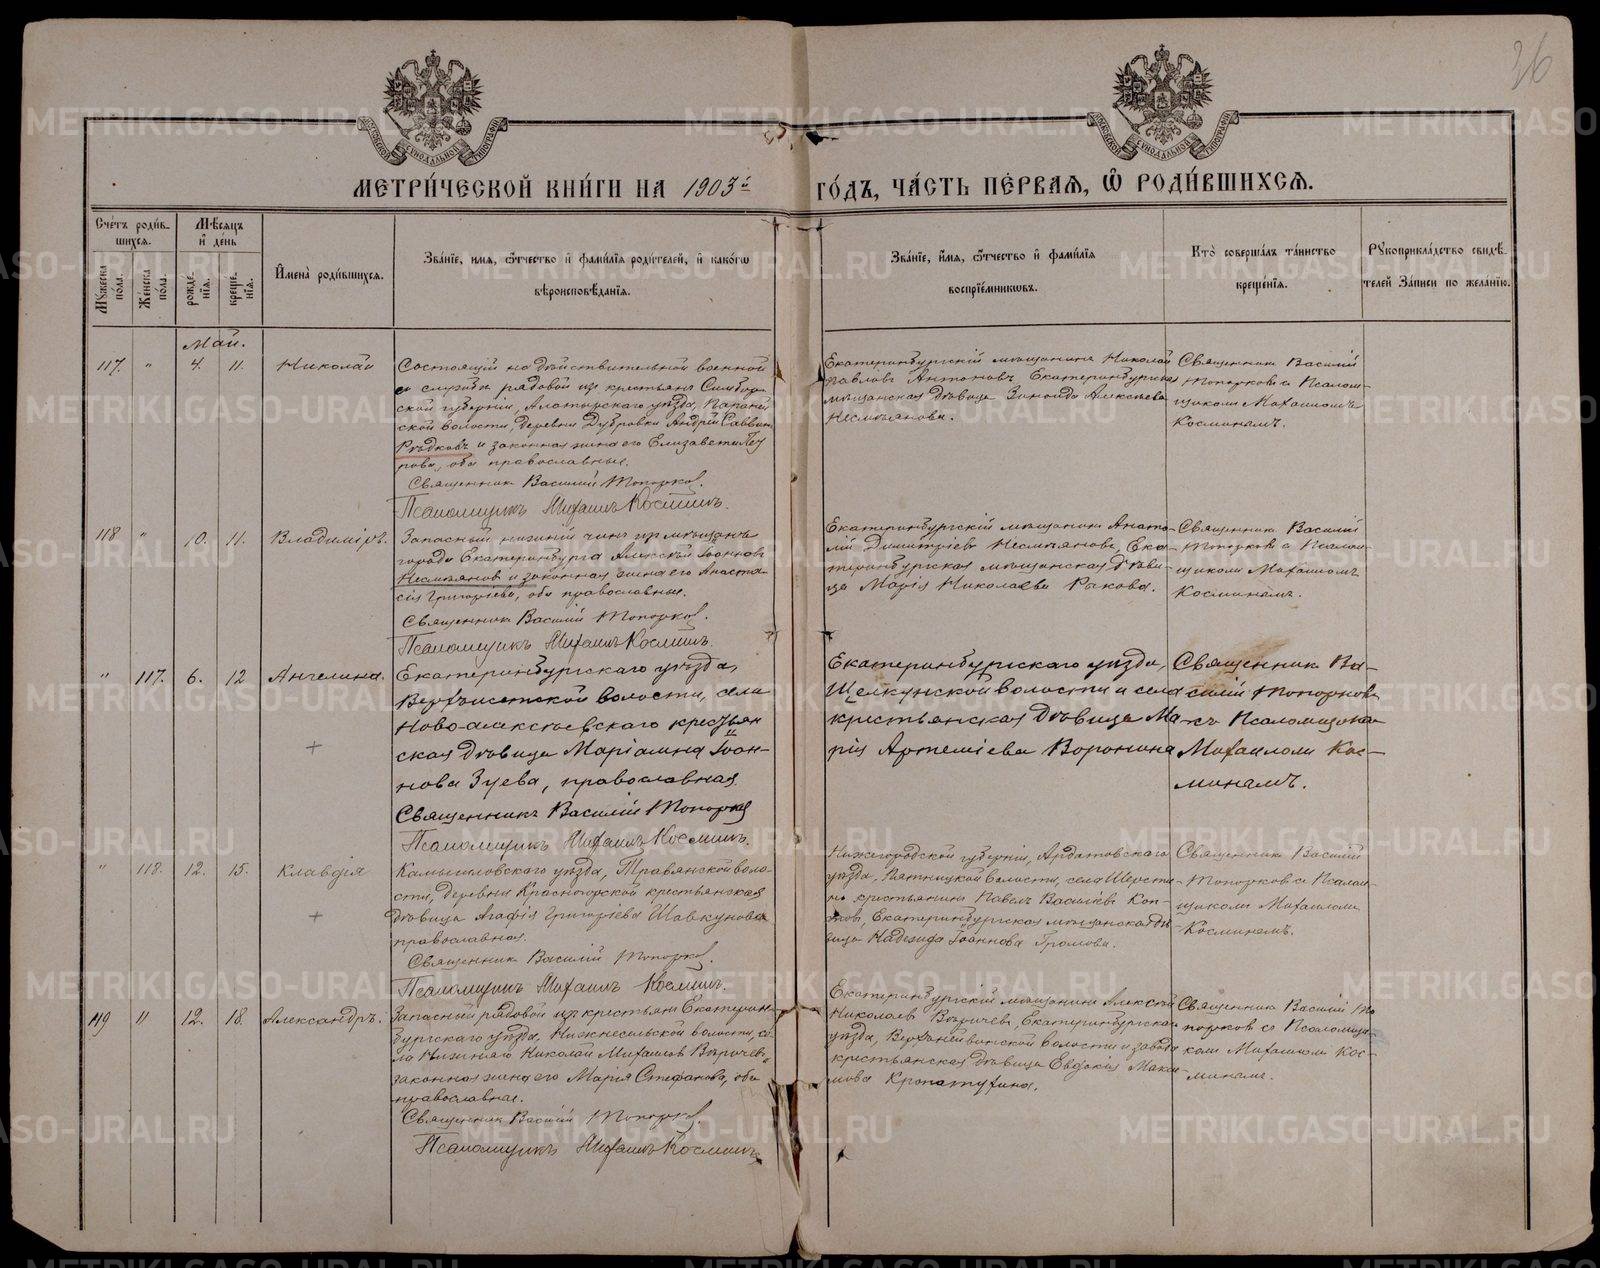 26
МОСКОВСКОЙ СѴНОДАЛЬНОЙ ТИПОГРАФІИ
МОСКОВСКОЙ СѴНОДАЛЬНОЙ ТИПОГРАФІИ
МЕТРИ́ЧЕСКОЙ КНИ́ГИ НА 1903й ГО́ДЪ, ЧА́СТЬ ПЕ́РВАЯ, Ѡ РОДИ́ВШИХСЯ.
Сче́тъ роди́в-
шихся.
Му́жеска по́ла.
Же́нска по́ла.
Мѣ́сяцъ
и҆ де́нь
рожде́-
нїя.
креще́-
нїя.
И҆мена̀ роди́вшихся.
Зва́нїе, и҆мя, ѻ҆́тчество и҆ фами́лїя роди́телей, и҆ како́гѡ
вѣроисповѣ́данїя.
Зва́нїе, и҆́мя, ѻ҆́тчество и҆ фами́лїя
воспрїе́мникѡвъ.
Кто̀ соверша́лъ та́инство
креще́нїя.
Рꙋкоприкла́дство свидѣ́-
телей за́писи по жела́нїю.
Май.
117. " 4. 11. Николай
Состоящій на дѣйствительной военной
службѣ рядовой изъ крестьянъ Симбир-
ской губерніи, Алатырскаго уѣзда,
ской волости, деревни Дубровки Андрей Саввин
Рѣдковъ и законная жена его Елизавета Пет
рова, оба православные.
Священникъ Василій Топорков.
Псаломщикъ Михаилъ Косминъ.
Екатеринбургскій мѣщанинъ Николай
Павловъ Антоновъ, Екатеринбургская
мѣщанская дѣвица Зинаида Алексѣева
Несмѣянова.
Священникъ Василій
Топорковъ съ Псалом-
щикомъ Михаиломъ
Косминымъ.
118 " 10. 11. Владиміръ.
Запасный нижній чинъ изъ мѣщанъ
города Екатеринбурга Алексѣй Іоанновъ
Несмѣяновъ и законная жена его Анаста-
сія Григоріева, оба православные.
Священникъ Василій Топорков.
Псаломщикъ Михаилъ Косминъ.
Екатеринбургскій мѣщанинъ Анато-
лій Димитріевъ Несмѣяновъ, Ека-
теринбургская мѣщанская дѣви-
ца Марія Николаева Ракова.
Священникъ Василій
Топорковъ съ Псалом-
щикомъ Михаиломъ
Косминымъ.
" 117. 6. 12 Ангелина.
+
Екатеринбургскаго уѣзда,
Верхъисетской волости, села
Ново-алексѣевскаго крестьян
ская дѣвица Маріамна Іоан-
нова Зуева, православная.
Священникъ Василій Топорков
Псаломщикъ Михаилъ Косминъ.
Екатеринбургскаго уѣзда,
Щелкунской волости и села
крестьянская дѣвица Ма-
рія Артеміева Воронина
Священникъ Ва-
силій Топорковъ
съ Псаломщико-
Михаиломъ Кос-
минымъ.
" 118. 12. 15. Клавдія
+
Камышловскаго уѣзда, Травянской воло-
сти, деревни Красногорской крестьянская
дѣвица Агафія Григоріева Шавкунова
православная.
Священникъ Василій Топорков.
Псаломщикъ Михаилъ Косминъ.
Нижегородской губерніи, Ардатовскаго
уѣзда, Вятницкой волости, села
крестьянинъ Павелъ Василіевъ
Екатеринбургская мѣщанская дѣ-
вица Надежда Іоаннова Громова.
Священникъ Василій
Топорковъ съ Псалом-
щикомъ Михаиломъ
Косминымъ.
119 " 12. 18. Александръ.
Запасный рядовой изъ крестьянъ Екатерин-
бургскаго уѣзда, Нижнесельской волости, се-
ла Николай Михаиловъ
законная жена его Марія Стефанова, оба
православные.
Священникъ Василій Топорков
Псаломщикъ Михаилъ Косминъ.
Екатеринбургскій мѣщанинъ Алексѣй
Николаевъ Екатеринбургскаго
уѣзда, Верхнейвинской волости и завода
крестьянская дѣвица Евдокія Макси-
мова Кропатухина.
Священникъ Василій То
порковъ съ Псаломщи-
комъ Михаиломъ Кос-
минымъ.